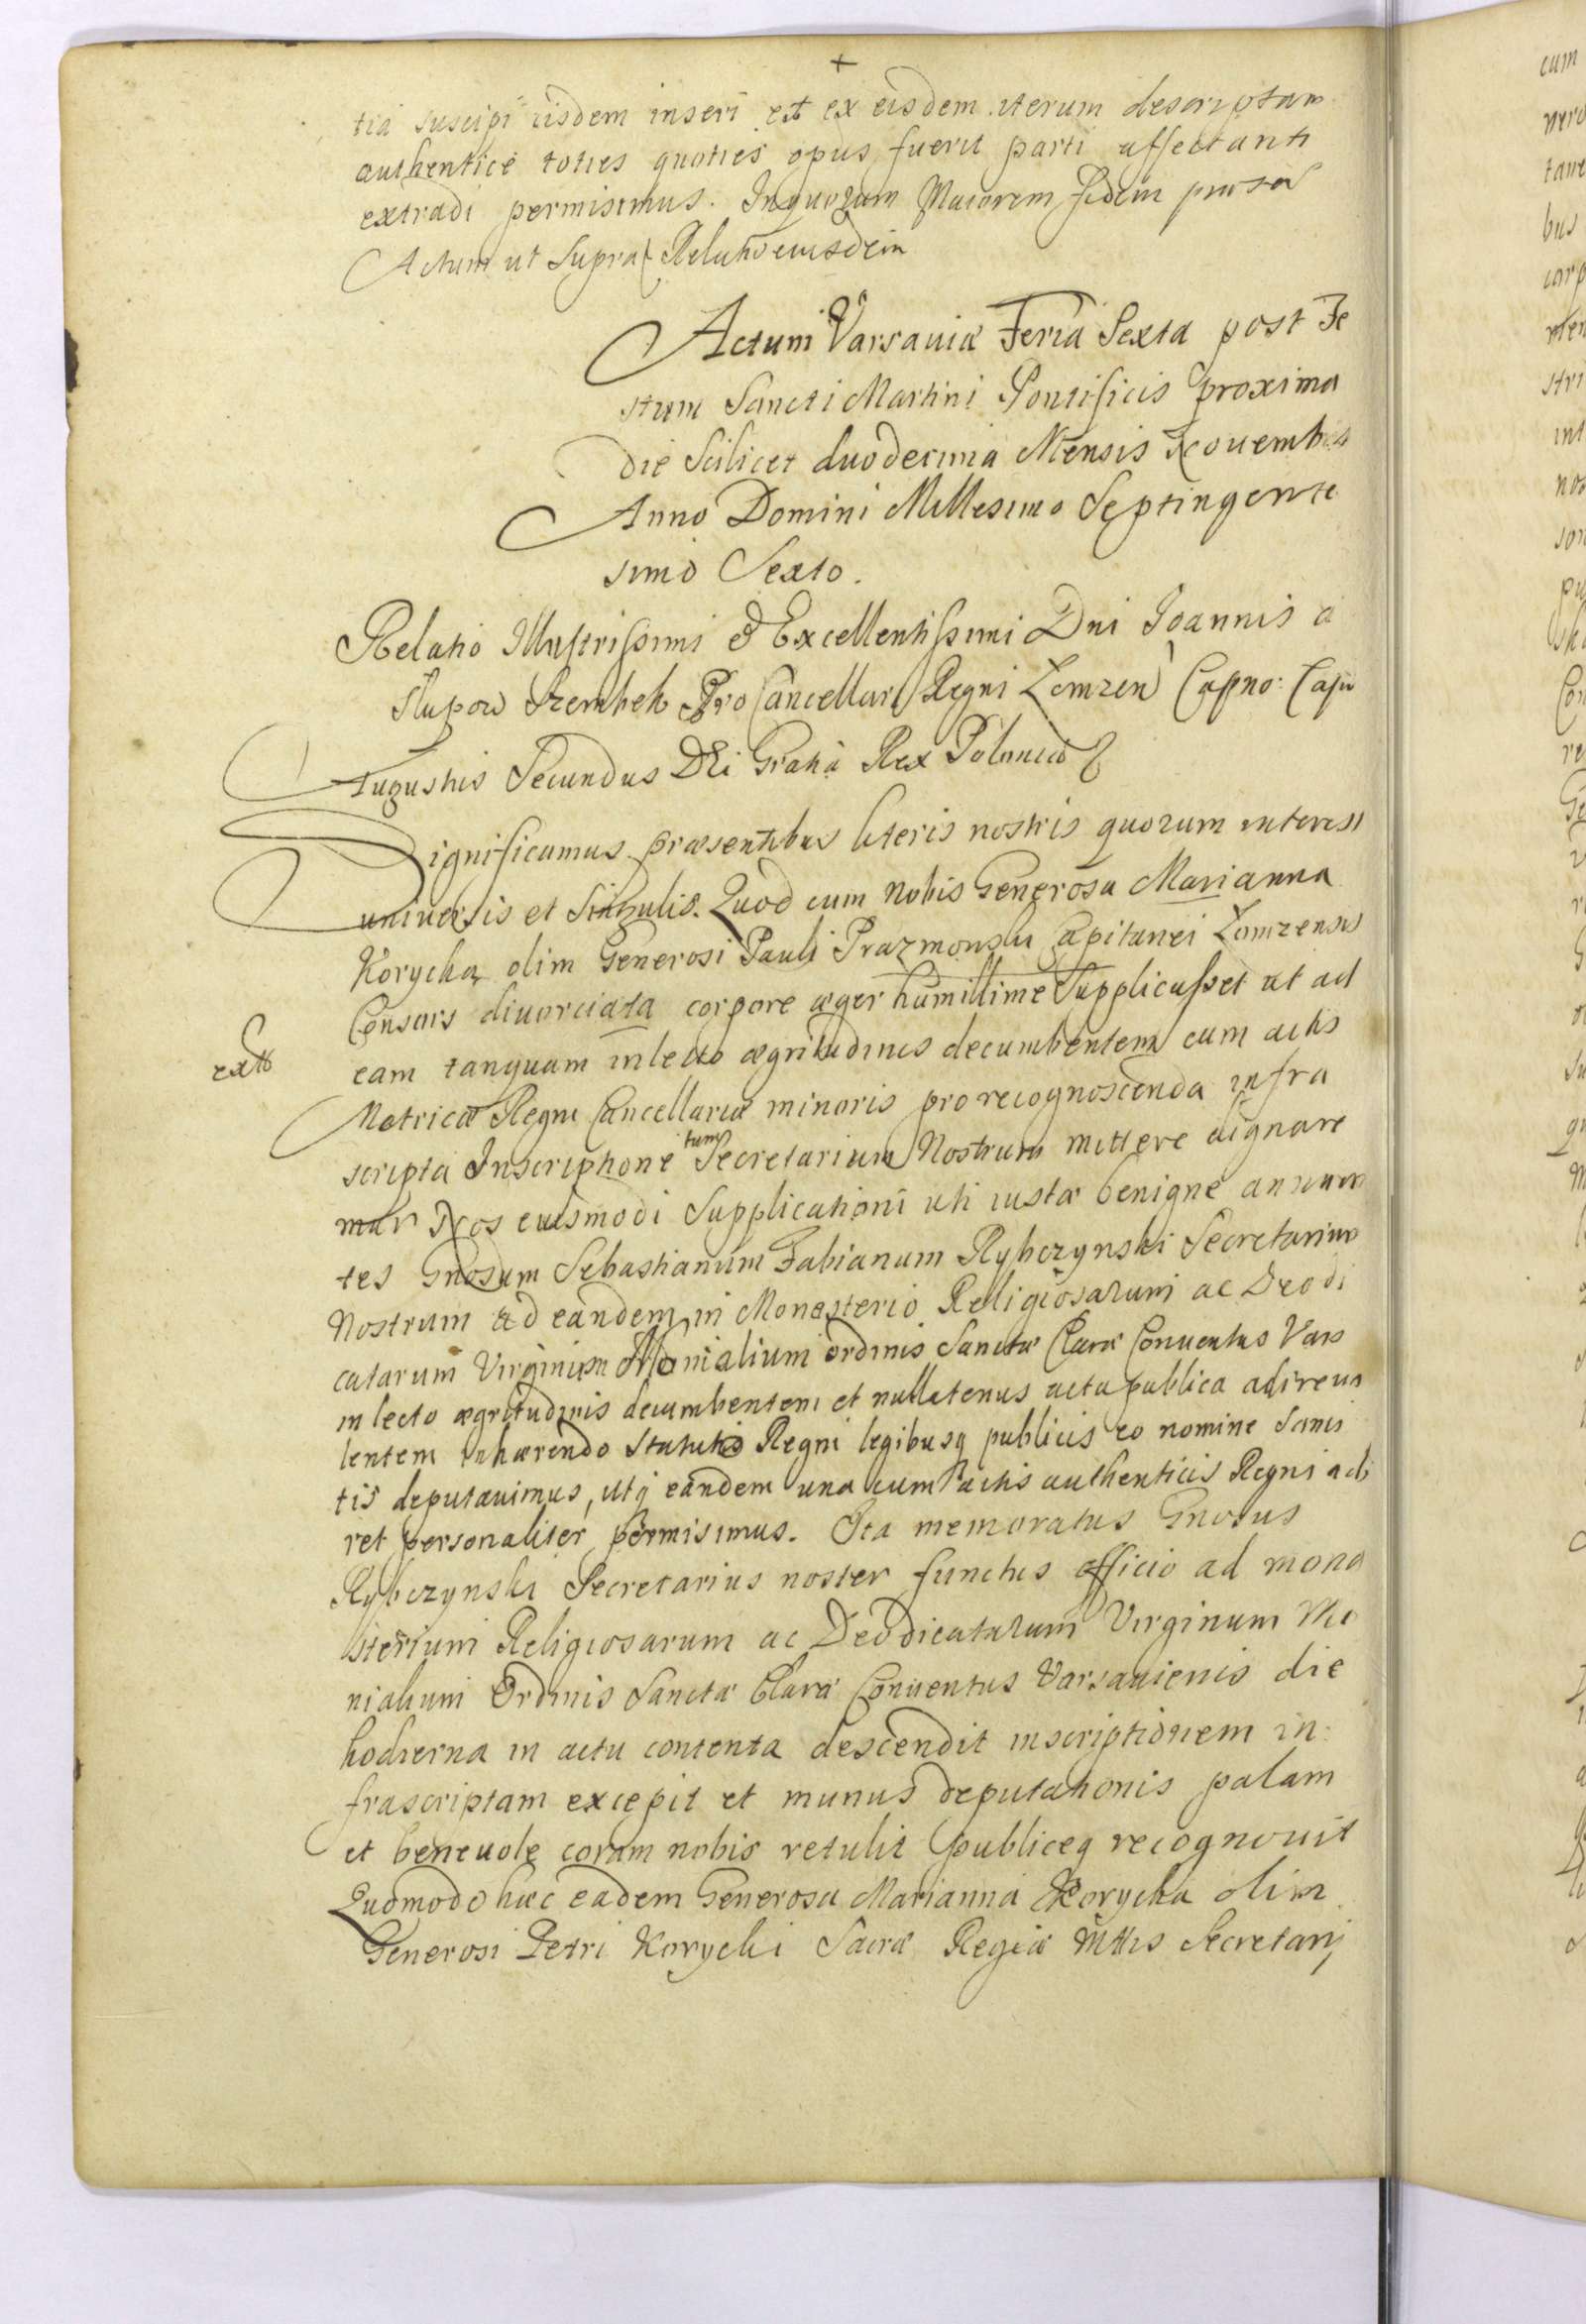 +
tia suscipi iisdem inseri et ex eisdem iterum descriptam
authenticè toties quoties opus fuerit parti affectanti
extradi permisimus. In quorum Maiorem fidem
Actum ut Supra Relatio eiusdem
Actum Varsaviæ Feria Sexta post Fe
stum Sancti Martini Pontificis proxima
die Scilicet duodecima Mensis Novembris
Anno Domini Millesimo Septingente
simo Sexto.
Relatio Illustrissimi & Excellentissimi Dni Joannis à
Slupow Szembek Pro Cancellarij Regni Lomzen Capno: Capn
Augustus Secundus DEi Gratia Rex Poloniæ
Significamus præsentibus literis nostris quorum interest
universis et Singulis. Quod cum nobis Generosa Marianna
Korycka olim Generosi Pauli Prazmonski Capitanei Lomzensis
Consors divorciata corpore æger humillime Supplicasset ut ad
exttr
eam tanquam in lecto ægritudinis decumbentem cum actis
Metricæ Regni Cancellariæ minoris pro recognoscenda infra
scripta Inscriptione tum Secretarium Nostrum mittere dignare
mur Nos eiusmodi Supplicationi uti iustæ benigne annuen
tes Gnosum Sebastianum Fabianum Rybczynski Secretarium
Nostrum ad eandem in Monasterio Religiosarum ac Deo di
catarum Virginum Monialium ordinis Sanctæ Claræ Conventus Vars
in lecto ægritudinis decumbentem et nullatenus acta publica adire va
lentem inhærendo Statutis Regni legibusq publicis eo nomine Sanci
tis deputavimus, utq eandem una cum actis authenticis Regni adi
ret personaliter permisimus. Ita memoratus Gnosus
Rybczynski Secretarius noster functus officio ad mona
sterium Religiosarum ac Deo dicatarum Virginum Mo
nialium Ordinis Sanctæ Claræ Conventus Varsaviensis die
hodierna in actu contenta descendit inscriptionem in
frascriptam excepit et munus deputationis palam
et benevole coram nobis retulit publiceq recognovit
Quomodo hæc eadem Generosa Marianna Korycka olim
Generosi Petri Korycki Sacræ Regiæ Mttis Secretarij